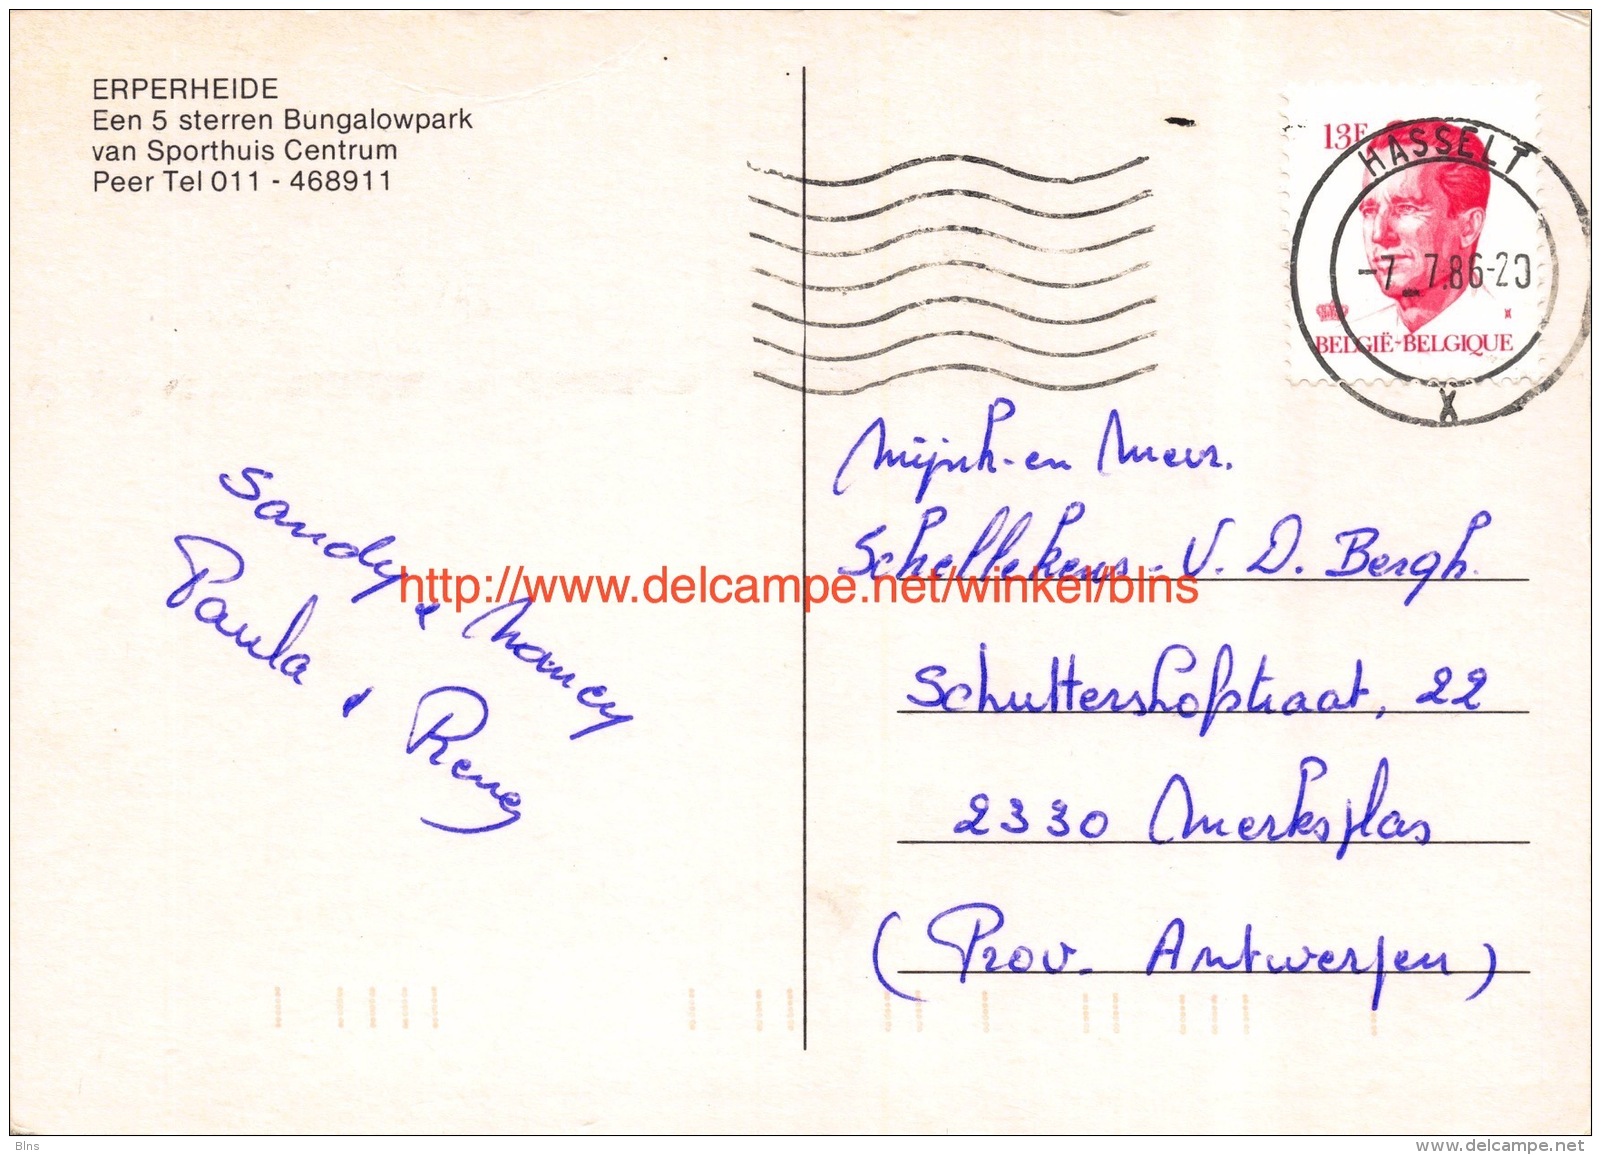 ERPERHEIDE
Een 5 sterren Bungalowpark
van Sporthuis Centrum
Peer Tel 011 - 468911
13F
HASSELT
-7_7.86-20
BELGIË-BELGIQUE
X
Sandy & Nancy
Paula & Reney
Mijnh-en Mevr.
Schellekens-V.D. Bergh.
Schuttershofstraat, 22
2330 Merksplas
(Prov. Antwerpen)
http://www.delcampe.net/winkel/blns
Blns
www.delcampe.net